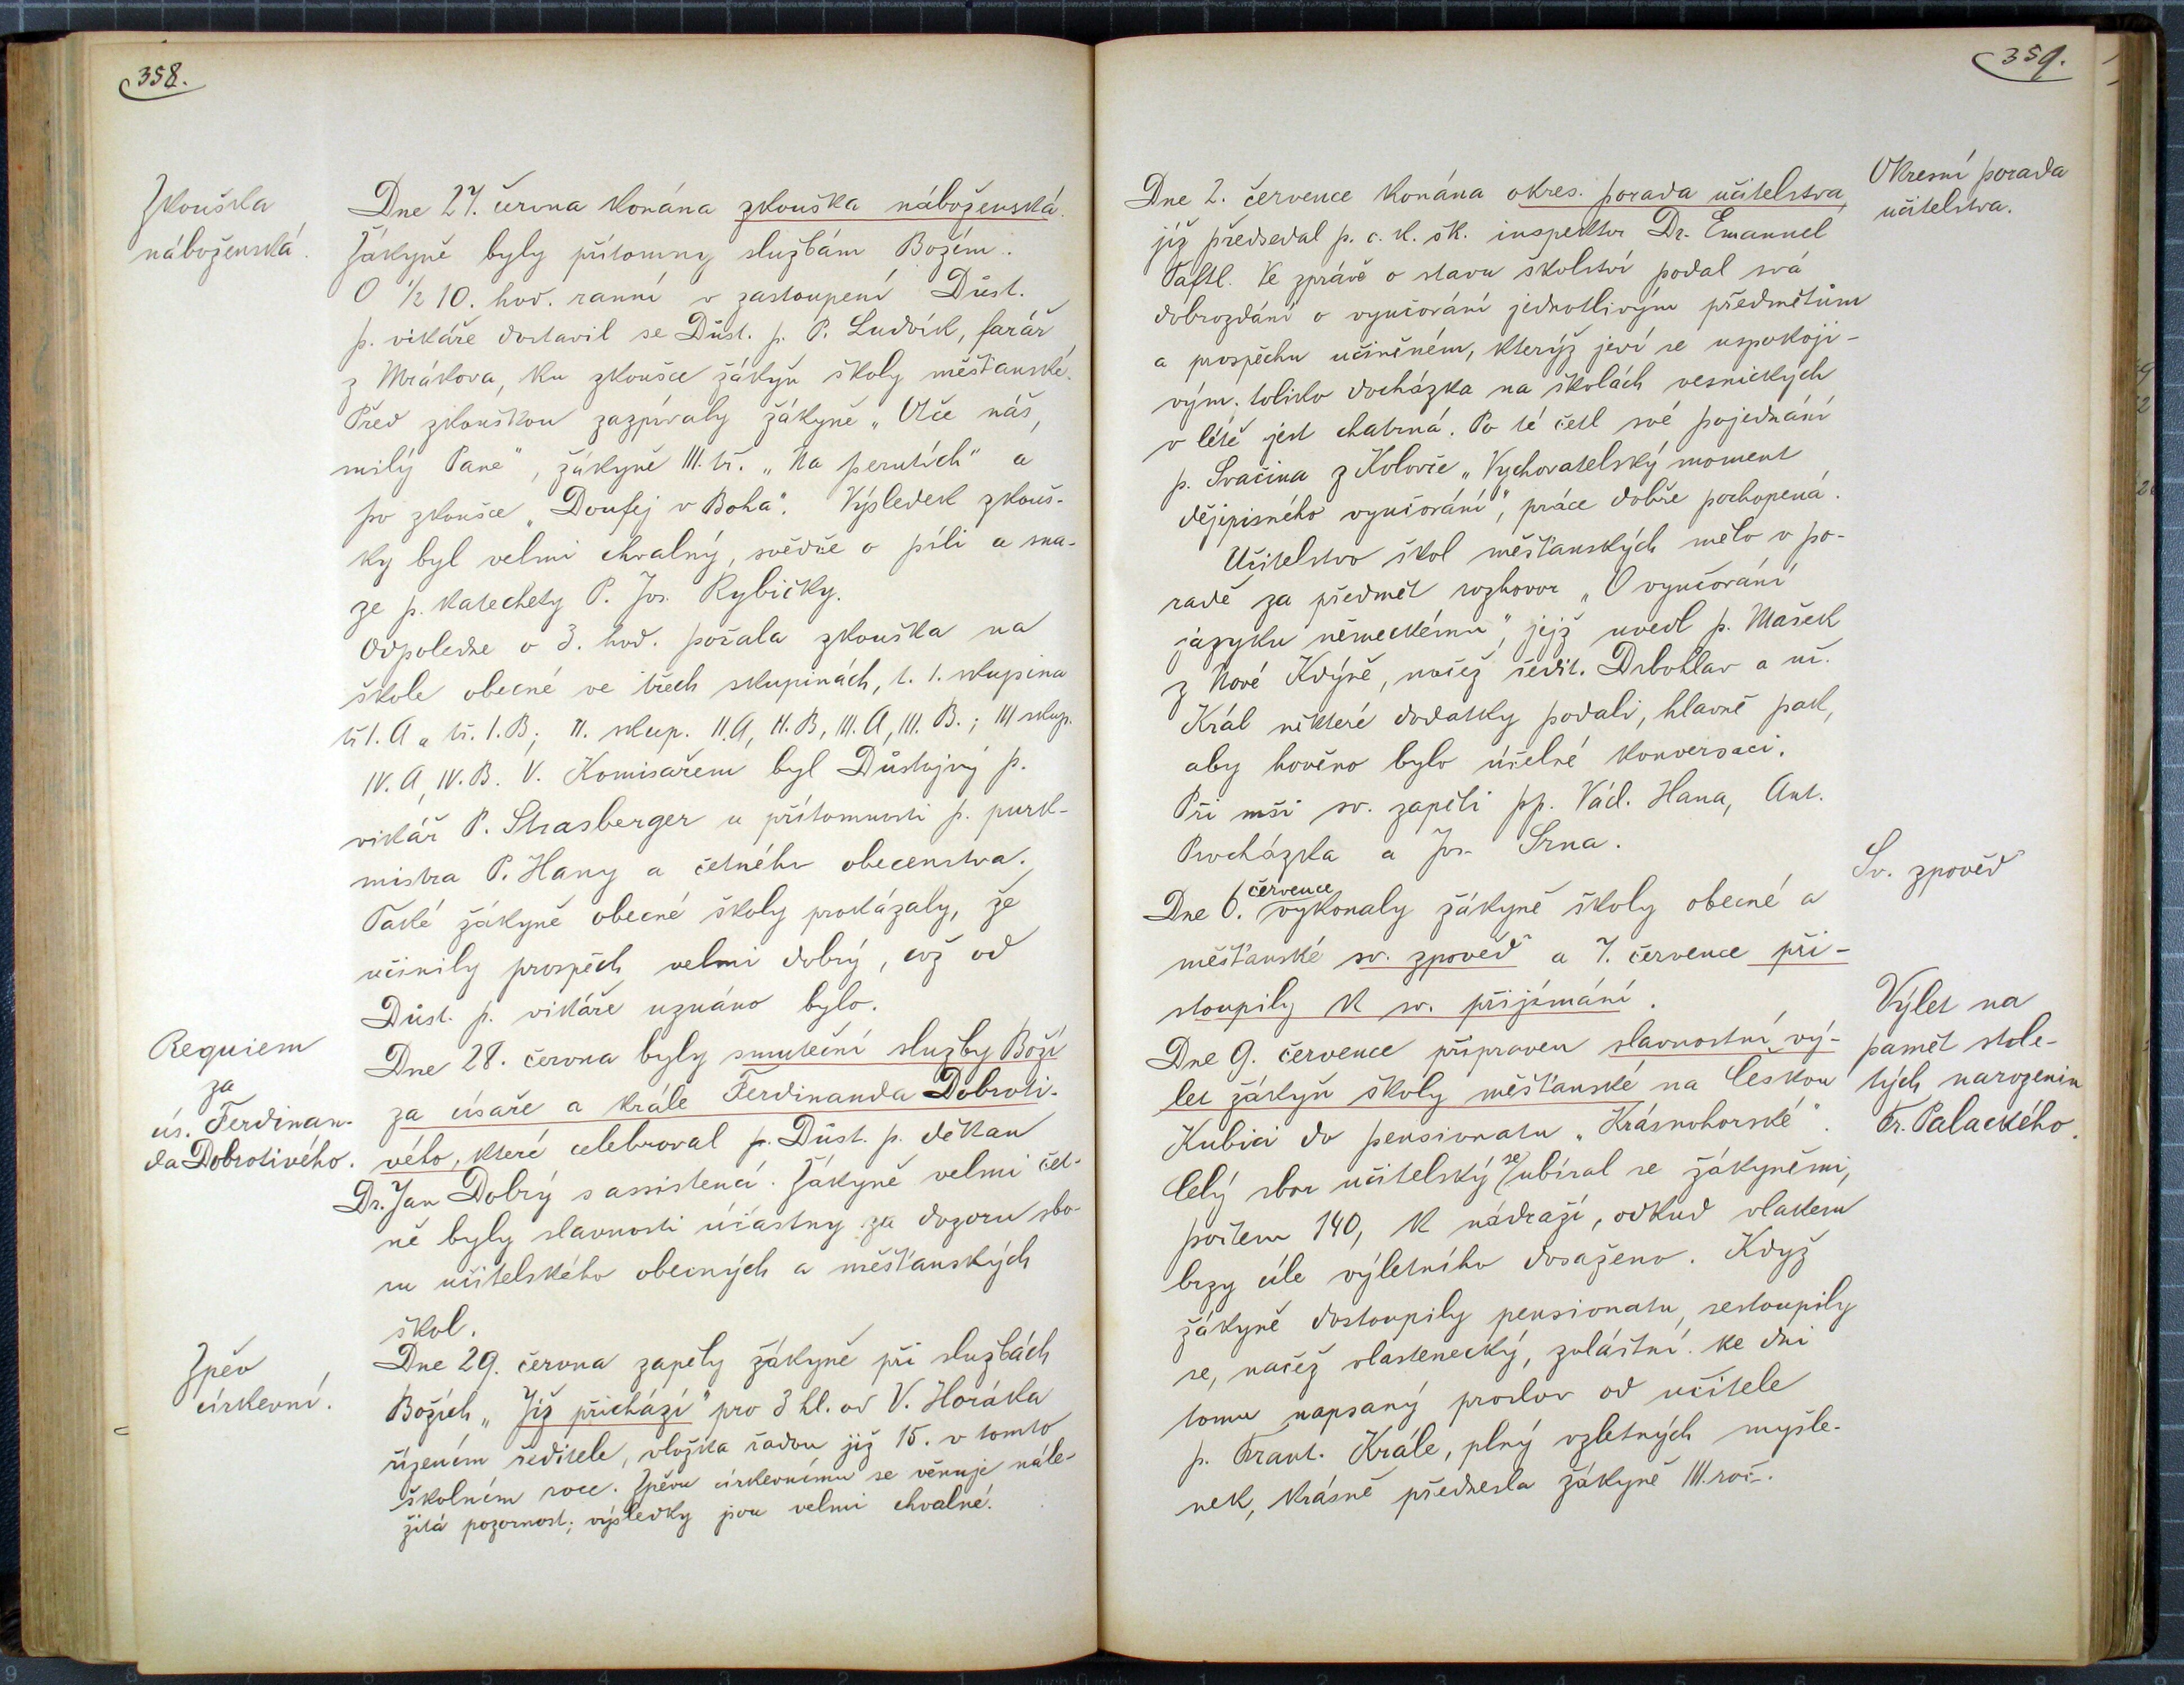 358.
Zkouška
náboženská.
Dne 27. června konána zkouška náboženská.
Žákyně byly přítomny službám Božím.
O ½ 10. hod. ranní v zastoupení Důst.
p. vikáře dostavil se Důst. p. P. Ludvík, farář
z Mrákova, ku zkoušce žákyň školy měšťanské.
Před zkouškou zazpívaly žákyně „Otče náš,
milý Pane", žákyně III. tř. „Na perutích" a
po zkoušce „Doufej v Boha". Výsledek zkouš-
ky byl velmi chvalný, svědče o píli a sna-
ze p. katechety P. Jos. Rybičky.
Odpoledne o 3. hod. počala zkouška na
škole obecné ve třech skupinách, t. 1. skupina
tř I. A a tř. I. B; II. skup. II. A, II. B, III. A, III. B.; III skup.
IV. A, IV. B. V. Komisařem byl Důstojný p.
vikář P. Strasberger u přítomnosti p. purk-
mistra P. Hany a četného obecenstva.
Také žákyně obecné školy prokázaly, že
učinily prospěch velmi dobrý, což od
Důst. p. vikáře uznáno bylo.
Requiem
za
cís. Ferdinan-
da Dobrotivého.
Dne 28. června byly smuteční služby Boží
za císaře a krále Ferdinanda Dobroti-
vého, které celebroval p. Důst. p. děkan
Dr. Jan Dobrý s assistencí. Žákyně velmi čet-
ně byly slavnosti účastny za dozoru sbo-
ru učitelského obecných a měšťanských
škol.
Zpěv
církevní.
Dne 29. června zapěly žákyně při službách
Božích „Již přichází" pro 3 hl. od V. Horáka
řízením ředitele, vložka řadou již 15. v tomto
školním roce. Zpěvu církevnímu se věnuje nále-
žitá pozornost; výsledky jsou velmi chvalné.
359.
Okresní porada
učitelstva.
Dne 2. července konána okres. porada učitelstva,
jíž předsedal p. c. k. šk. inspektor Dr. Emanuel
Taftl. Ve zprávě o stavu školství podal svá
dobrozdání o vyučování jednotlivým předmětům
a prospěchu učiněném, kterýž jeví se uspokoji-
vým. toliko docházka na školách vesnických
v létě jest chatrná. Po té četl své pojednání
p. Svačina z Kolovče „Vychovatelský moment
dějepisného vyučování", práce dobře pochopená.
Učitelstvo škol měšťanských mělo v po-
radě za předmět rozhovor „O vyučování
jazyku německému", jejž uvedl p. Mašek
z Nové Kdýně, načež ředit. Drbohlav a uč.
Král některé dodatky podali, hlavně pak,
aby hověno bylo účelné konversaci.
Při mši sv. zapěli pp. Václ. Hana, Ant.
Procházka a Jos. Srna.
Sv. zpověď
Dne 6. července vykonaly žákyně školy obecné a
měšťanské sv. zpověď a 7. července při-
stoupily k sv. přijímání.
Výlet na
pamět stole-
tých narozenin
Fr. Palackého.
Dne 9. července připraven slavnostní vý-
let žákyň školy měšťanské na Českou
Kubici do pensionatu „Krásnohorské".
Celý sbor učitelský se ubíral se žákyněmi,
počtem 140, k nádraží, odkud vlakem
brzy cíle výletního dosaženo. Když
žákyně dostoupily pensionatu, sestoupily
se, načež vlastenecký, zvláštní ke dni
tomu napsaný proslov od učitele
p. Frant. Krále, plný vzletných myšle-
nek, krásně přednesla žákyně III. roč.